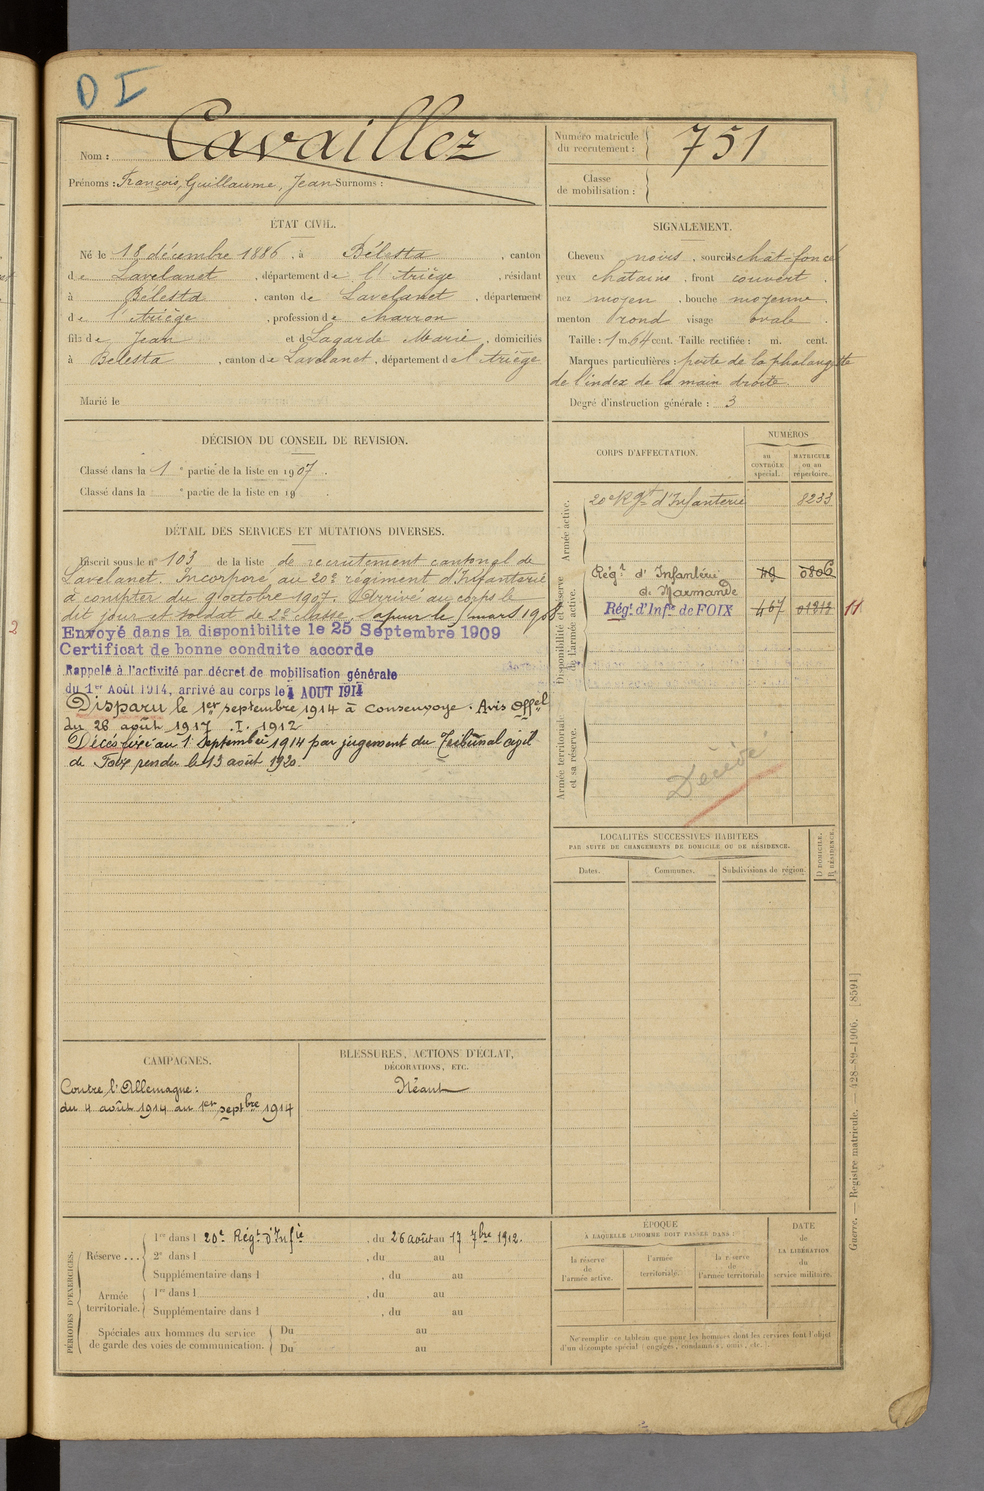 D I
Nom : Cavaillez
Prénoms : François, Guillaume, Jean Surnoms :
Numéro matricule du recrutement : 751
Classe de mobilisation :
ÉTAT CIVIL.
Né le 18 décembre 1886, à Bélesta, canton
de Lavelanet, département de l'Ariège, résidant
à Bélesta, canton de Lavelanet, département
de l'Ariège, profession de charron
fils de Jean et de Lagarde Marie, domiciliés
à Bélesta, canton de Lavelanet, département de l'Ariège
Marié le
SIGNALEMENT.
Cheveux noirs, sourcils chât-foncé
yeux chatains, front couvert
nez moyen, bouche moyenne
menton rond visage ovale
Taille : 1 m. 64 cent. Taille rectifiée : m. cent.
Marques particulières : perte de la phalangette
de l'index de la main droite
Degré d'instruction générale : 3
DÉCISION DU CONSEIL DE REVISION.
Classé dans la 1e partie de la liste en 1907.
Classé dans la e partie de la liste en 19 .
DÉTAIL DES SERVICES ET MUTATIONS DIVERSES.
Inscrit sous le n° 103 de la liste de recrutement cantonal de
Lavelanet. Incorporé au 20e régiment d'Infanterie
à compter du 9 octobre 1907. Arrivé au corps le
dit jour et soldat de 2e classe.
Envoyé dans la disponibilite le 25 Septembre 1909
Certificat de bonne conduite accorde
Rappelé à l'activité par décret de mobilisation générale
du 1er Août 1914, arrivé au corps le 4 AOUT 1914
Disparu le 1er septembre 1914 à Consenvoye. Avis Offel
du 28 août 1917 .I. 1912
Décès fixé au 1 Septembre 1914 par jugement du Tribunal civil
de Foix rendu le 13 août 1920
CORPS D'AFFECTATION.
NUMÉROS
au CONTRÔLE spécial.
MATRICULE ou au répertoire.
Armée active.
20e Rgt d'Infanterie 8233
Disponibilité et réserve de l'armée active.
Régt d'Infanterie 0806
de Marmande
Régt d'Infie de FOIX 467 01313 11
Armée territoriale et sa réserve.
Décédé
LOCALITÉS SUCCESSIVES HABITÉES
PAR SUITE DE CHANGEMENTS DE DOMICILE OU DE RÉSIDENCE.
Dates. Communes. Subdivisions de région. D DOMICILE. R RÉSIDENCE.
CAMPAGNES.
Contre l'Allemagne :
du 4 août 1914 au 1er septbre 1914
BLESSURES, ACTIONS D'ÉCLAT,
DÉCORATIONS, ETC.
Néant
PÉRIODES D'EXERCICES.
Réserve ...
1re dans l 20e Régt d'Infie, du 26 août au 17 7bre 1912.
2e dans l , du au
Supplémentaire dans l , du au
Armée territoriale.
1re dans l , du au
Supplémentaire dans l , du au
Spéciales aux hommes du service
de garde des voies de communication.
Du au
Du au
ÉPOQUE
À LAQUELLE L'HOMME DOIT PASSER DANS :
la réserve de l'armée active.
l'armée territoriale.
la réserve de l'armée territoriale
DATE de LA LIBÉRATION du service militaire.
Ne remplir ce tableau que pour les hommes dont les services font l'objet
d'un décompte spécial (engagés, condamnés, omis, etc.).
Guerre. — Registre matricule. — 428-89-1906. [8591]
2